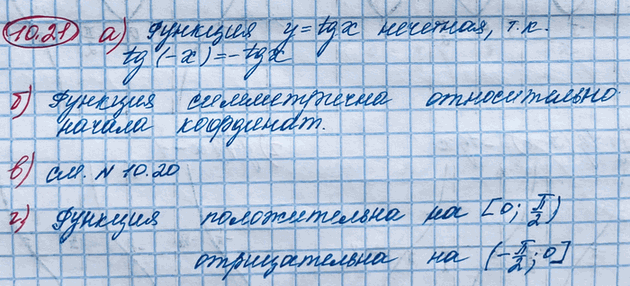 10.21 а) Функция y=tgx нечетная, т.к.
tg(-x)=-tgx
б) Функция симметрична относительно
начала координат.
в) см. N 10.20
г) Функция положительна на [0; π/2)
отрицательна на (-π/2; 0]